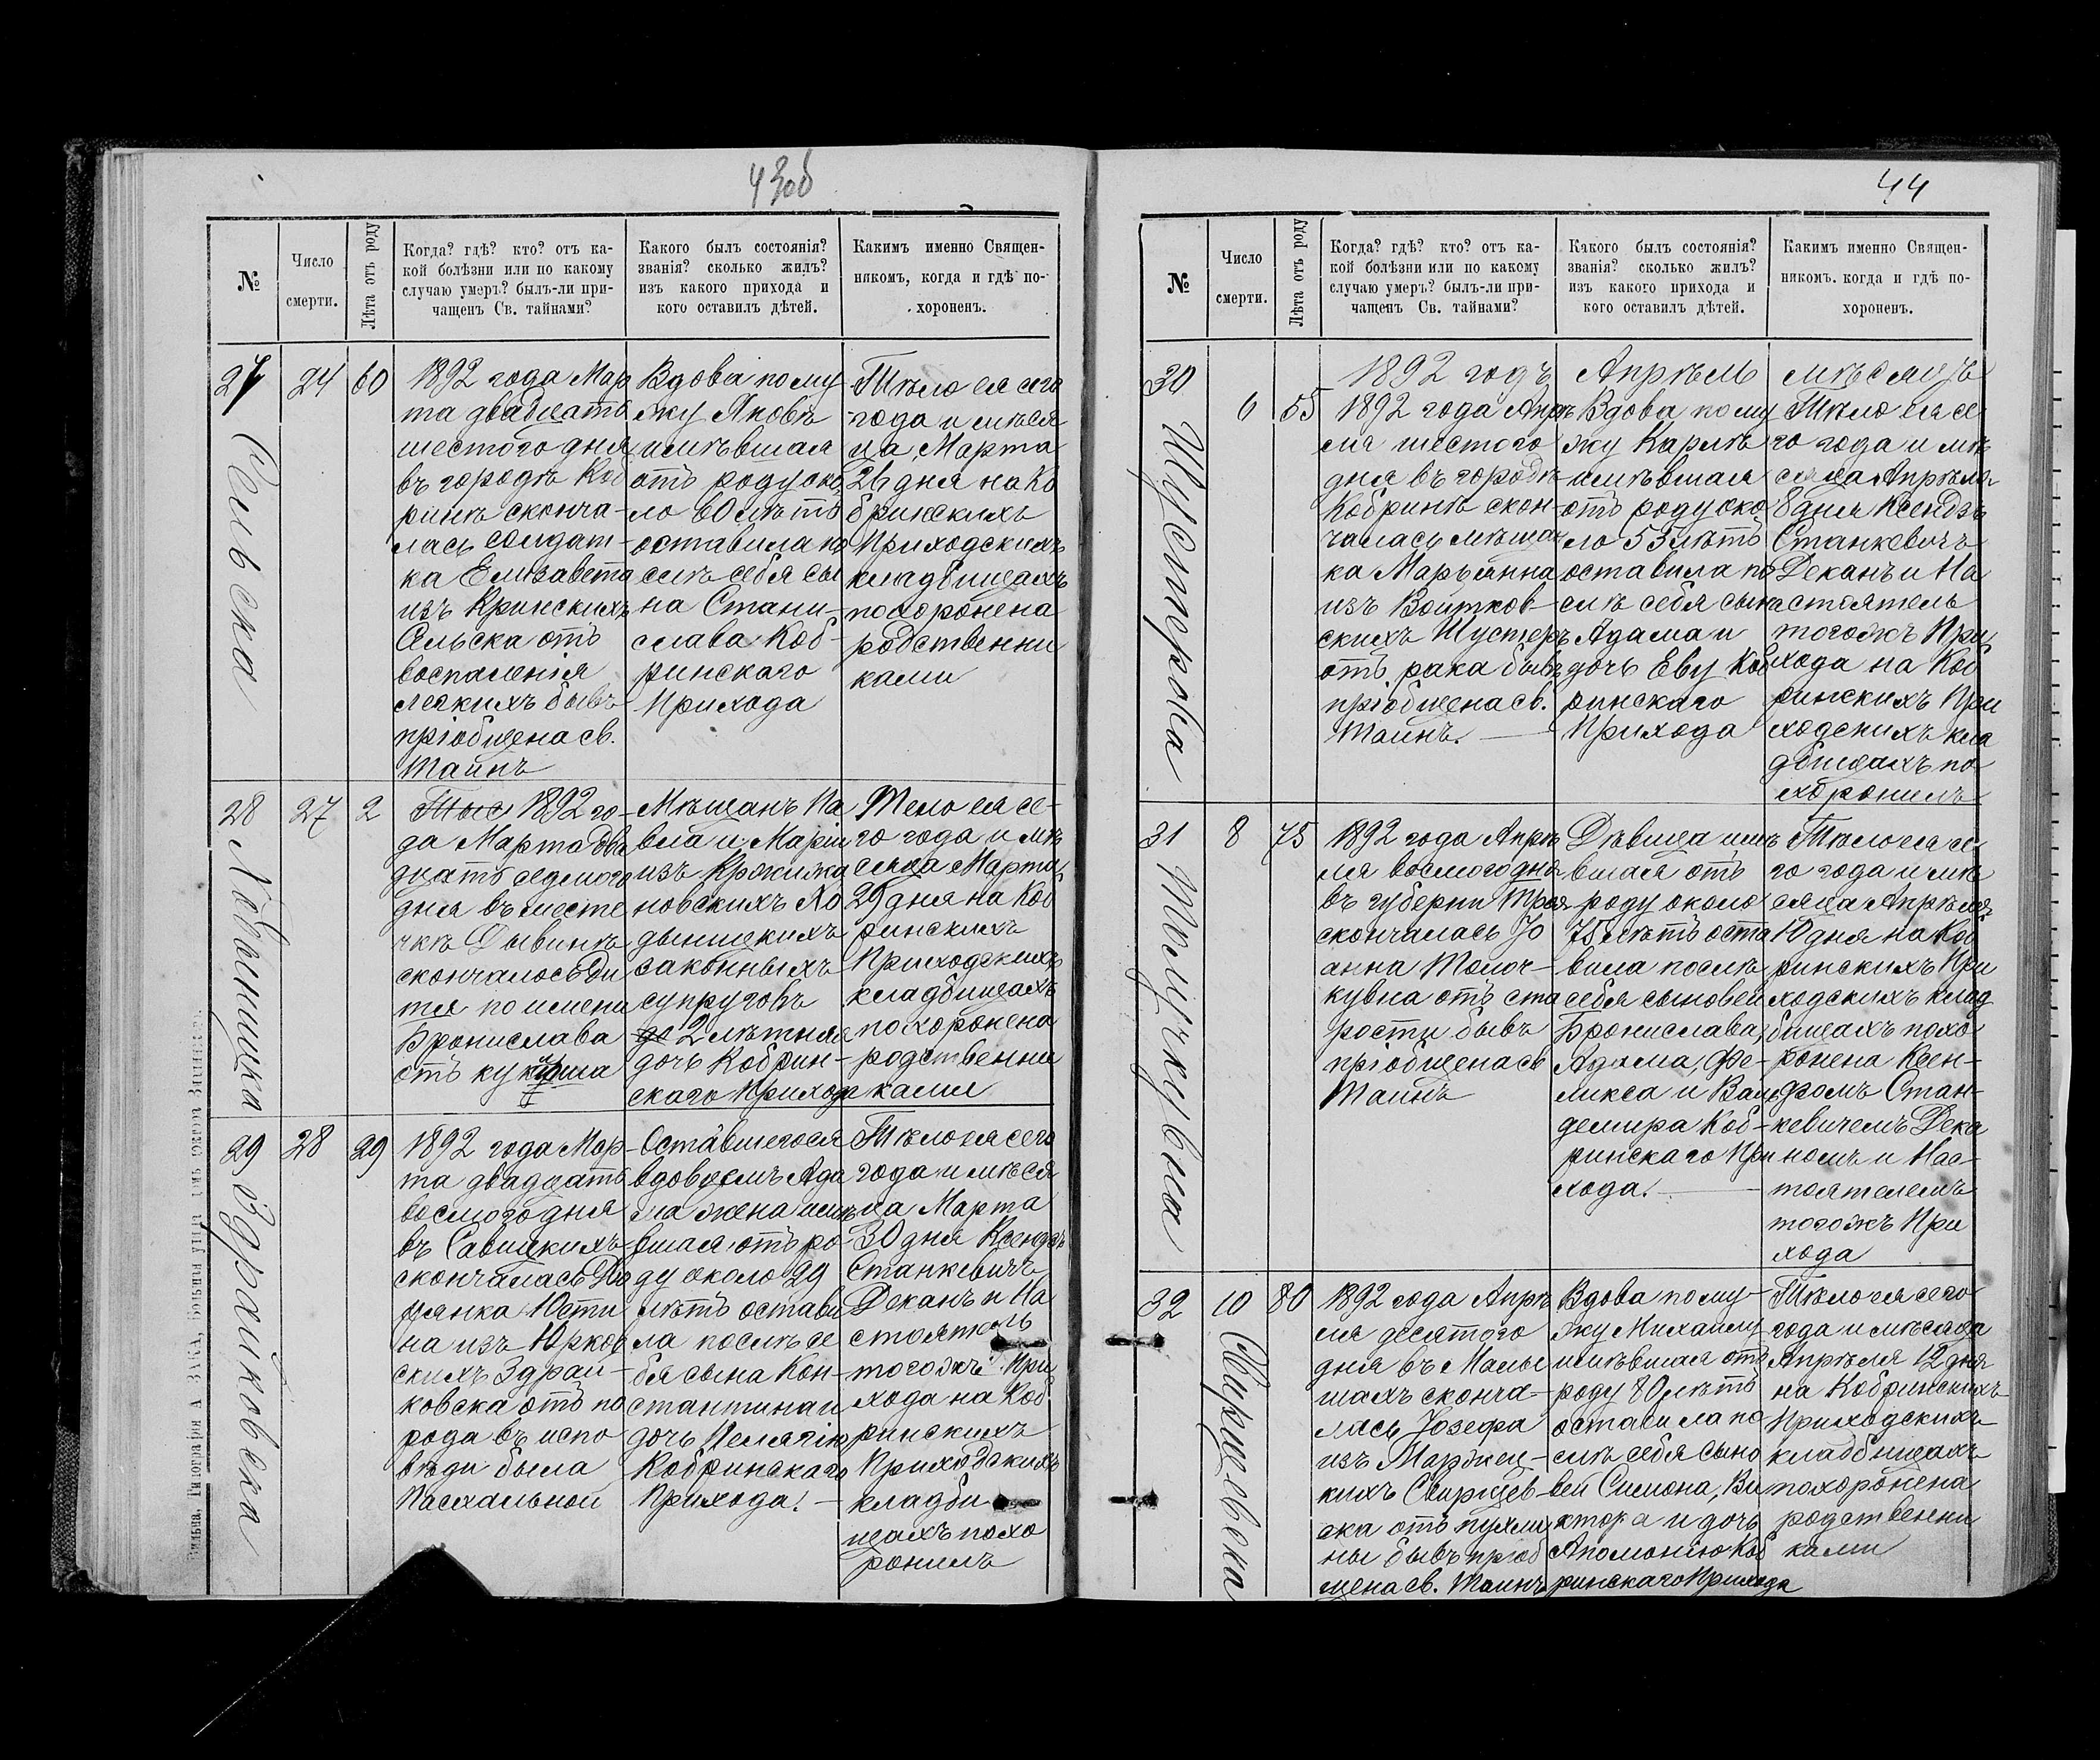 43об
№
Число
смерти.
Лѣта отъ роду
Когда? гдѣ? кто? отъ ка-
кой болѣзни или по какому
случаю умеръ? былъ-ли при-
чащенъ Св. тайнами?
Какого былъ состоянія?
званія? сколько жилъ?
изъ какого прихода и
кого оставилъ дѣтей.
Какимъ именно Священ-
никомъ, когда и гдѣ по-
хороненъ.
27
Сельска
24
60
1892 года Мар
та двадцать
шестого дня
въ городѣ Коб
ринѣ сконча-
лась солдат-
ка Елизавета
изъ Кринскихъ
Сельска отъ
воспаленія
легкихъ бывъ
пріобщена св.
Таинъ
Вдова по му
жу Яковѣ
имѣвшая
отъ роду око
ло 60 лѣтъ
оставила по
слѣ себя сы
на Стани-
слава Коб-
ринскаго
Прихода
Тѣло ея сего
года и мѣся
ца Марта
26 дня на Ко
бринскихъ
Приходскихъ
кладбищахъ
похоронена
родственни
ками
28
Ходыницка
27
2
1892 го-
да Марта два
дцать седмого
дня въ месте
чкѣ Дывинѣ
скончалось Ди
тя по имени
Бронислава
отъ
Мѣщанъ Па
вла и Маріи
изъ Кржижа
новскихъ Хо
дыницкихъ
законныхъ
супруговъ
2 лѣтняя
дочь Кобрин-
скаго Прихода
Тело ея се-
го года и мѣ
сяца Марта
29 дня на Коб
ринскихъ
Приходскихъ
кладбищахъ
похоронена
родственни
ками
29
Здрайковска
28
29
1892 года Мар-
та двадцать
восмого дня
въ Савицкихъ
скончалась Дво
рянка Юсти
на изъ Юрков
скихъ Здрай-
ковска отъ по
рода въ испо
вѣди была
Пасхальной
Оставшегося
вдовцемъ Ада
ма жена имѣ
вшая отъ ро-
ду около 29
лѣтъ остави
ла послѣ се
бя сына Кон-
стантина и
дочь Пелягію
Кобринскаго
Прихода.
Тѣло ея сего
года и мѣся
ца Марта
30 дня Ксендзъ
Станкевичъ
Деканъ и На
стоятель
тогожъ При
хода на Коб
ринскихъ
Приходскихъ
кладби
щахъ похо
ронилъ
44
№
Число
смерти.
Лѣта отъ роду
Когда? гдѣ? кто? отъ ка-
кой болѣзни или по какому
случаю умеръ? былъ-ли при-
чащенъ Св. тайнами?
Какого былъ состоянія?
званія? сколько жилъ?
изъ какого прихода и
кого оставилъ дѣтей.
Какимъ именно Священ-
никомъ. когда и гдѣ по-
хороненъ.
1892 годъ Апрѣль мѣсяцъ
30
Шустерова
6
55
1892 года Апрѣ
ля шестого
дня въ городѣ
Кобринѣ скон-
чалась мѣщан
ка Марьянна
изъ Войтков-
скихъ Шустеръ
отъ рака бывъ
пріобщена св.
Таинъ.
Вдова по му
жу Карлѣ
имѣвшая
отъ роду око
ло 55 лѣтъ
оставила по
слѣ себя сына
Адама и
дочь Еву Коб
ринскаго
Прихода
Тѣло ея се
го года и мѣ
сяца Апрѣля
8 дня Ксендзъ
Станкевичъ
Деканъ и На
стоятель
тогожъ При
хода на Коб
ринскихъ При
ходскихъ кла
дбищахъ по
хоронилъ
31
Толочкувна
8
75
1892 года Апрѣ
ля восмого дня
въ губерни
скончалась Іо
анна Толоч-
кувна отъ ста
рости бывъ
пріобщена св
Таинъ
Дѣвица имѣ
вшая отъ
роду около
75 лѣтъ оста
вила послѣ
себя сыновей
Бронислава,
Адама, Фе-
ликса и Вал
демира Коб-
ринскаго При
хода.
Тѣло ея се-
го года и мѣ
сяца Апрѣля
10 дня на Коб
ринскихъ При
ходскихъ клад
бищахъ похо
ронена Ксен-
дзомъ Стан-
кевичемъ Дека
номъ и Нас-
тоятелемъ
тогожъ При
хода
32
Свирщевска
10
80
1892 года Апрѣ
ля десятого
дня въ Малы
шахъ сконча-
лась Іозефа
изъ
кихъ Свирщев-
ска отъ пухли
ны бывъ пріоб
щена св. Таинъ
Вдова по му-
жу Михаилу
имѣвшая отъ
роду 80 лѣтъ
оставила по
слѣ себя сыно
вей Симона, Ви
ктора и дочь
Аполонію Коб
ринскаго Прихода
Тѣло ея сего
года и мѣсяца
Апрѣля 12 дня
на Кобринскихъ
Приходскихъ
кладбищахъ
похоронена
родственни
ками